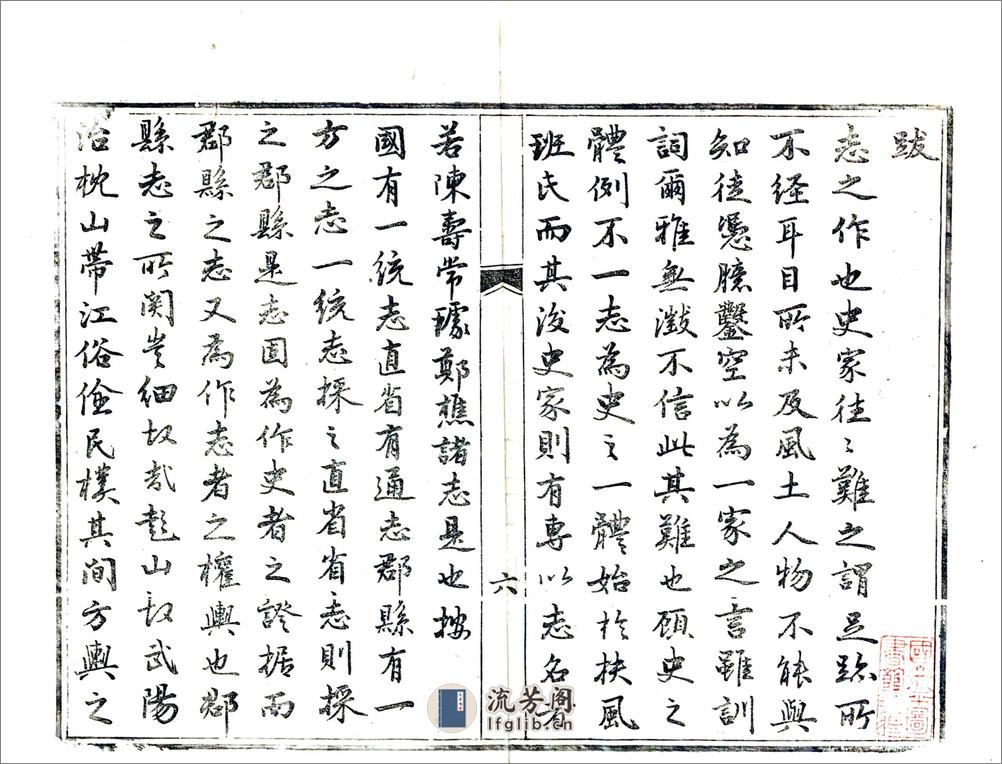 跋
志之作也史家往〻難之謂足跡所
不経耳目所未及風土人物不能與
知徒憑臆鑿空以為一家之言雖訓
詞爾雅無徵不信此其難也顧史之
體例不一志為史之一體始於扶風
班氏而其後史家則有專以志名者
六
若陳壽常璩鄭樵諸志是也按
國有一統志直省有通志郡縣有一
方之志一統志採之直省省志則採
之郡縣是志固為作史者之證據而
郡縣之志又為作志者之權輿也郡
縣志之所関豈細故哉彭山故武陽
治枕山帶江俗儉民樸其间方輿之
流芳阁
lfglib.cn